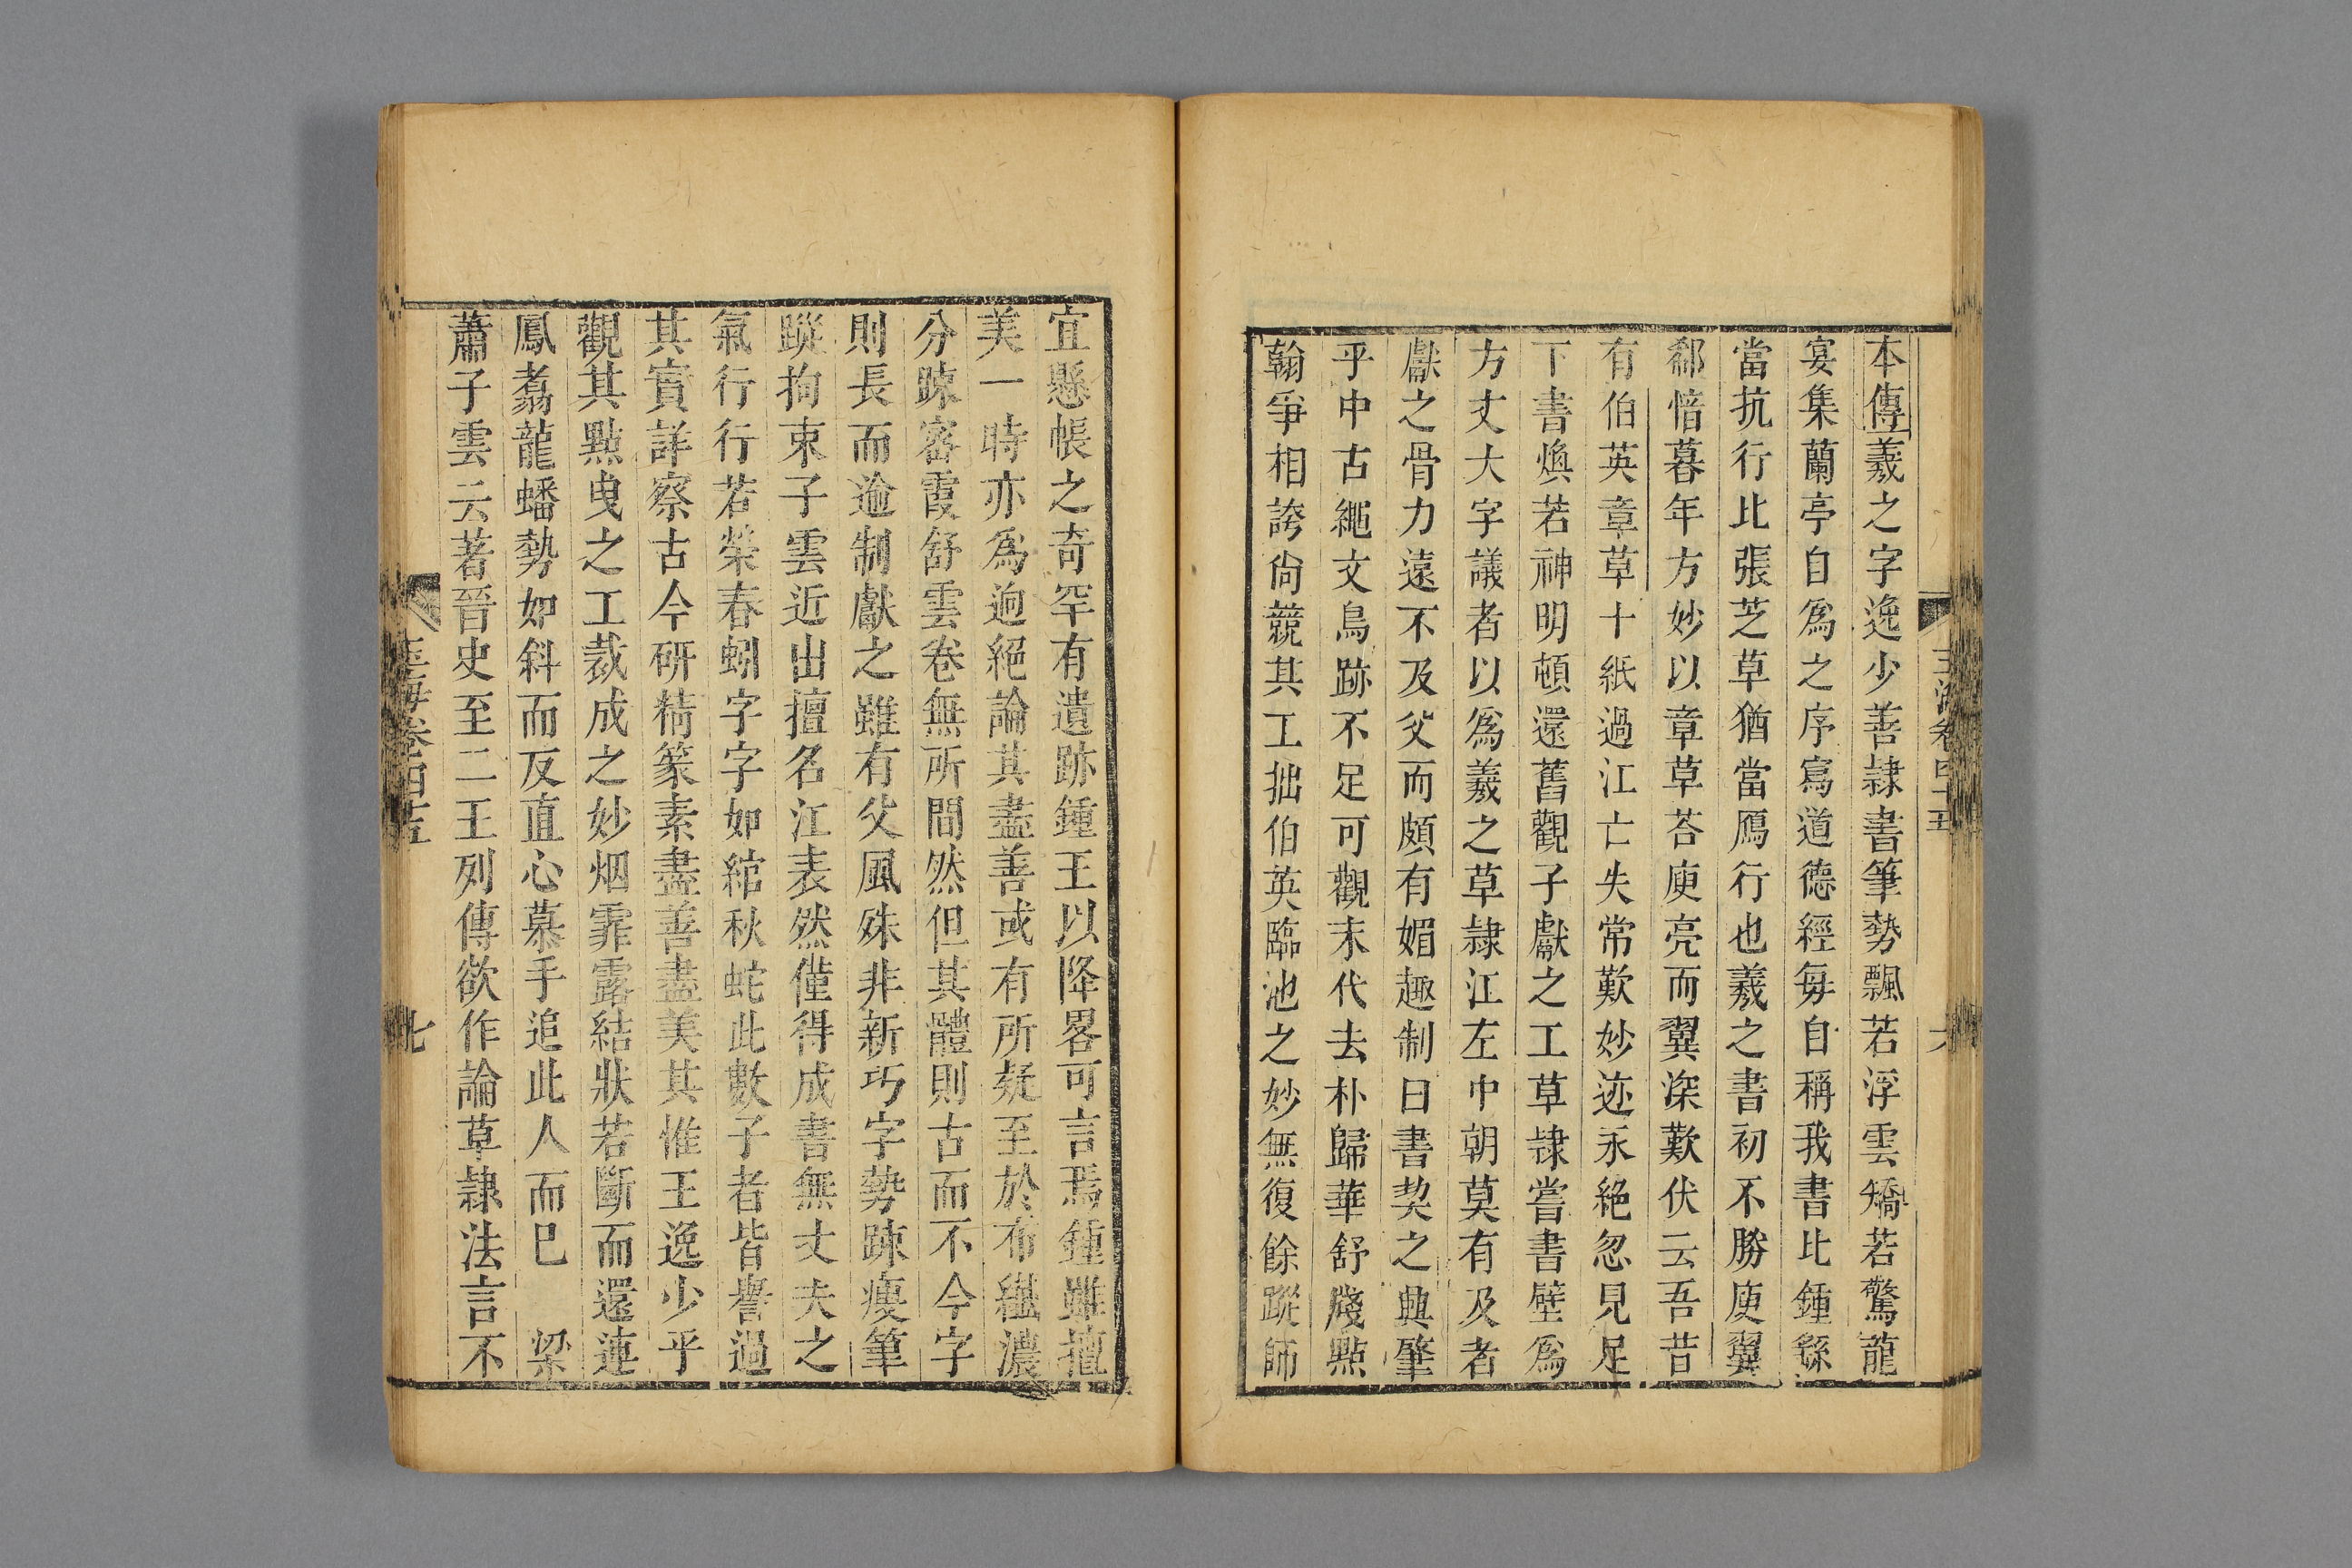 本傳羲之字逸少善隷書筆勢飄若浮雲矯若驚龍
宴集蘭亭自爲之序寫道德經每自稱我書比鍾繇
當抗行比張芝草猶當鴈行也羲之書初不勝庾翼
郗愔暮年方妙以章草荅庾亮而翼深歎伏云吾昔
有伯英章草十紙過江亡失常歎妙迹永絕忽見足
下書煥若神明頓還舊觀子獻之工草隷嘗書壁爲
方丈大字議者以爲羲之草隷江左中朝莫有及者
獻之骨力遠不及父而頗有媚趣制曰書契之興肇
乎中古繩文鳥跡不足可觀末代去朴歸華舒牋點
翰爭相誇尚競其工拙伯英臨池之妙無復餘蹤師
宜懸帳之奇罕有遺跡鍾王以降畧可言焉鍾雖擅
美一時亦爲逈絕論其盡善或有所疑至於布纖濃
分踈密霞舒雲卷無所間然但其體則古而不今字
則長而逾制獻之雖有父風殊非新巧字勢踈瘦筆
蹤拘束子雲近出擅名江表然僅得成書無丈夫之
氣行行若縈春蚓字字如綰秋蛇此數子者皆譽過
其實詳察古今研精篆素盡善盡美其惟王逸少乎
觀其點曳之工裁成之妙烟霏露結狀若斷而還連
鳳翥龍蟠勢如斜而反直心慕手追此人而已 梁
蕭子雲云著晉史至二王列傳欲作論草隷法言不
玉海卷四十五
七